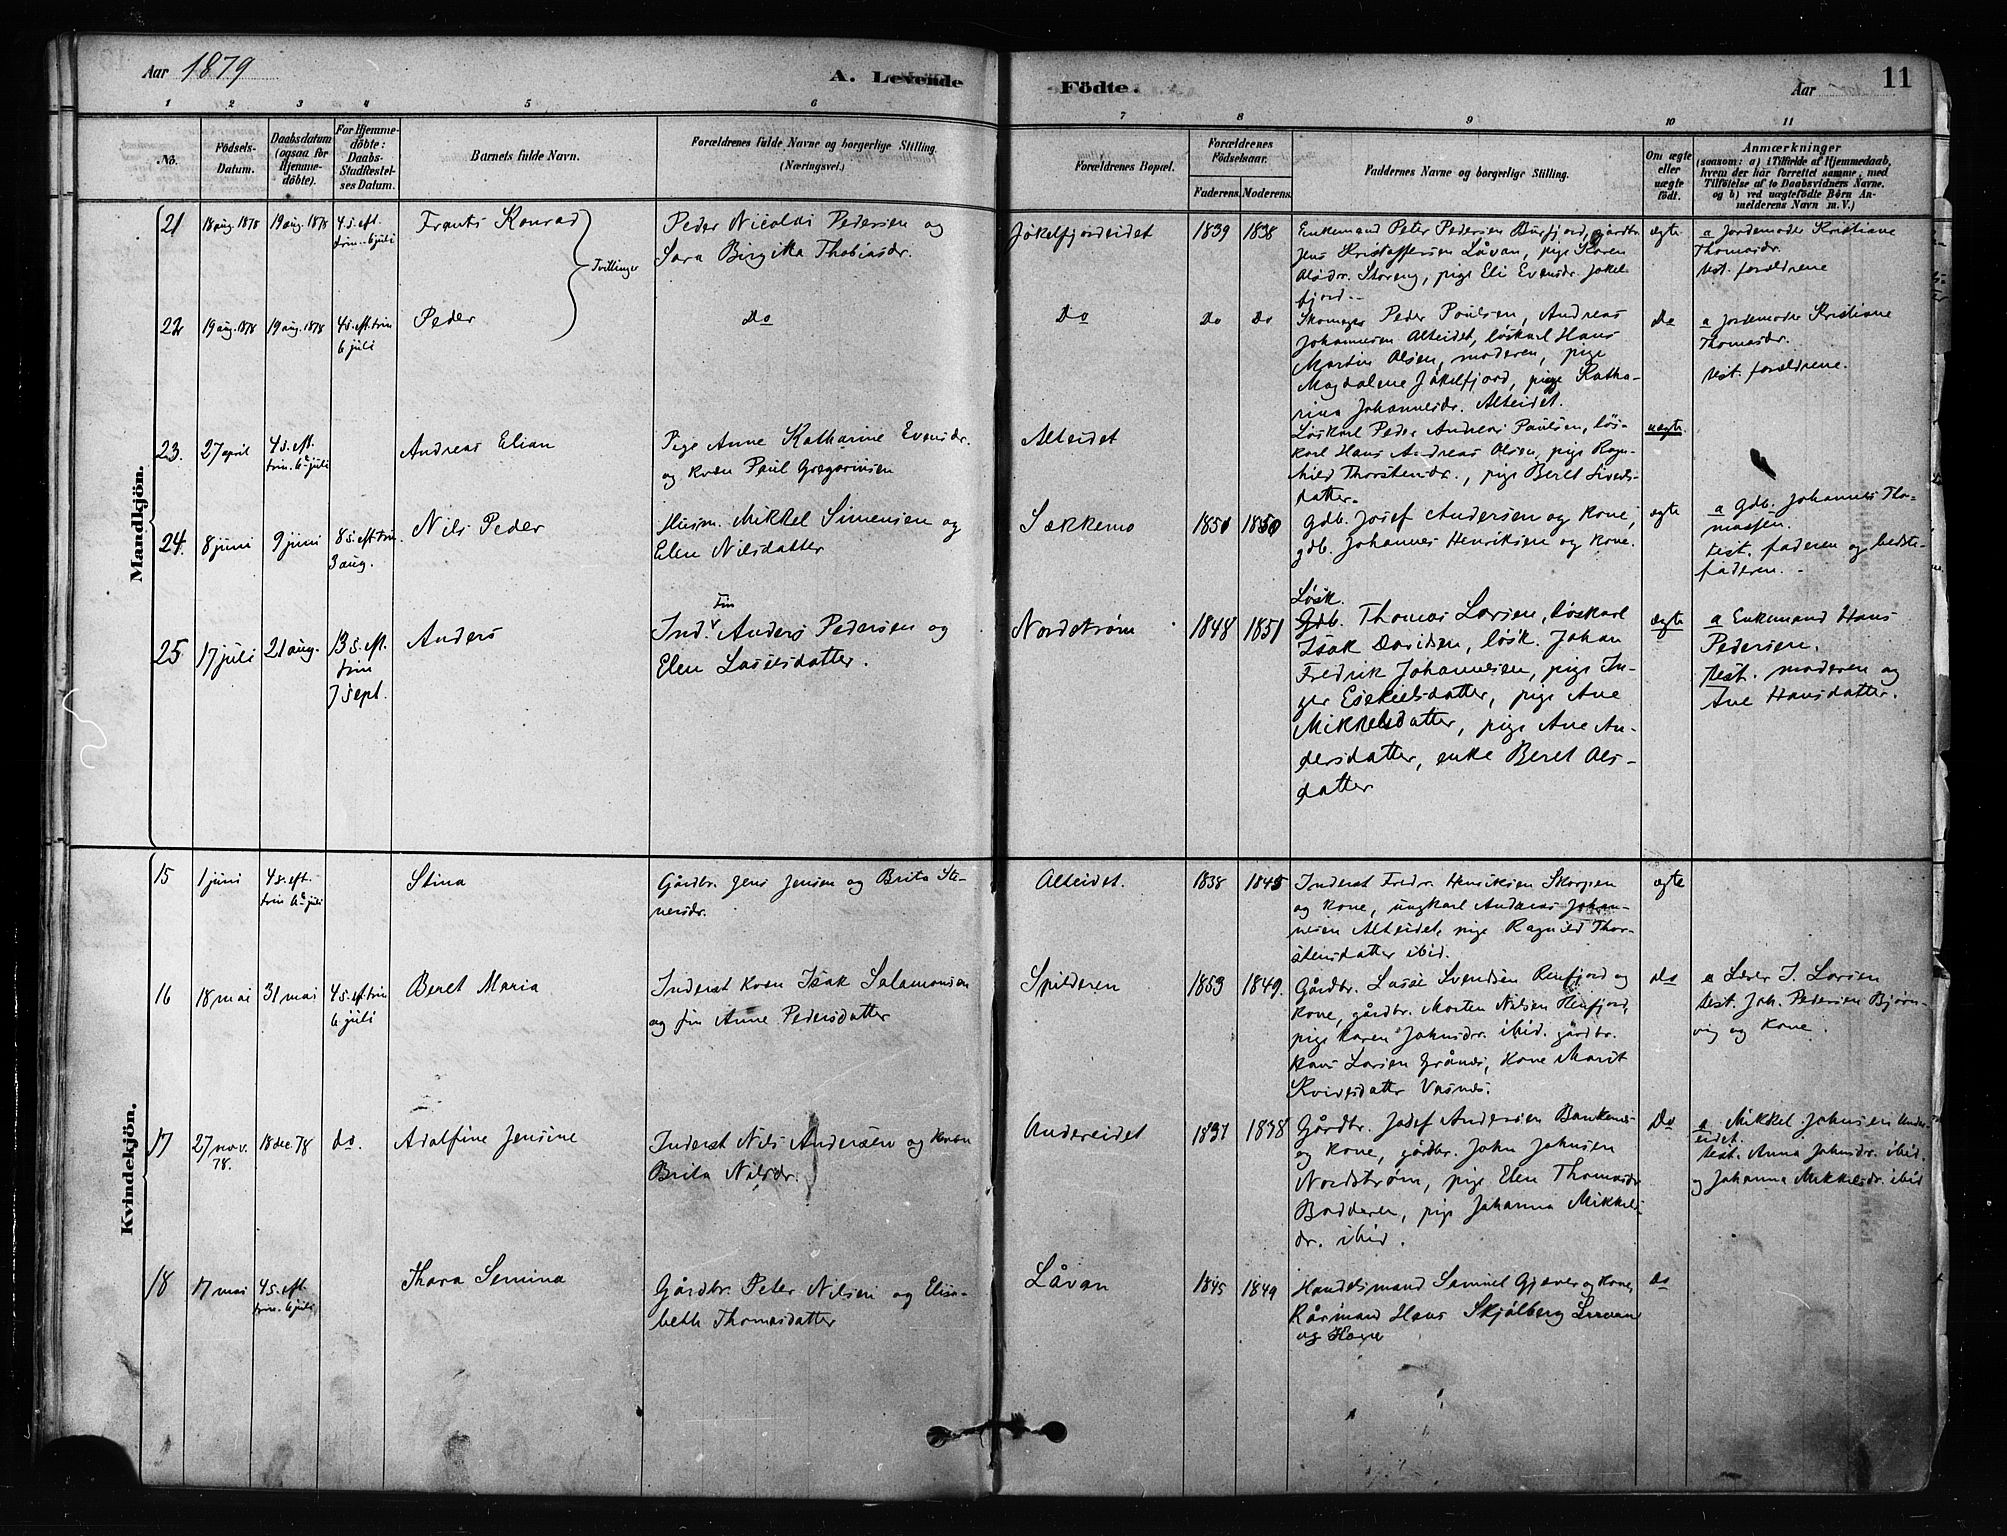 Aar 1879
A. Levende
Födte.
Aar
11
1 2 3 4 5 6 7 8 9 10 11
No.
Födsels-
Datum.
Daabsdatum
(ogsaa for
Hjemme-
döbte).
For Hjemme-
döbte:
Daabs-
Stadfæstel-
ses Datum.
Barnets fulde Navn.
Forældrenes fulde Navne og borgerlige Stilling.
(Næringsvei.)
Forældrenes Bopæl.
Forældrenes
Födselsaar.
Faderens. Moderens.
Faddernes Navne og borgerlige Stilling.
Om ægte
eller
uægte
födt.
Anmærkninger
(saasom: a) i Tilfælde af Hjemmedaab,
hvem der har forrettet samme, med
Tilföielse af to Daabsvidners Navne.
og b) ved uægtefödte Börn An-
melderens Navn m. V.)
Mandkjön.
21
18 aug. 1878
19 aug. 1878
4 s. eft.
trin. 6 juli
Frants Konrad
Tvillinger
Peder Nicolai Pedersen og
Sara Birgitta Thobiasdr.
Jøkelfjordeidet
1839
1838
Enkemand Peter Pedersen Burfjord, gårdbr.
Jens Kristoffersen Låvan, pige Karen
Olsdr. Storeng, pige Eli Evensdr. Jøkel-
fjord.
ægte
a Jordemoder Kristiane
Thomasdr.
test. forældrene
22
19 aug. 1878
19 aug. 1878
4 s. eft. trin
6 juli
Peder
Do
Do
Do
Do
Skomager Peder Poulsen, Andreas
Johannesen Alteidet, løskarl Hans
Martin Olsen, moderen, pige
Magdalene Jøkelfjord, pige Katha-
rina Johannesdr. Alteidet.
Do
a Jordemoder Kristiane
Thomasdr.
test. forældrene.
23.
27 april
4 s. eft.
trin. 6 juli
Andreas Elian
Pige Anne Katharine Evensdr.
og kvæn Paul Gregoriusen
Alteidet
Løskarl Peder Andreas Paulsen, løs-
karl Hans Andreas Olsen, pige Ragn-
hild Thorstensdr., pige Beret Siverts-
datter.
uægte
24.
8 juni
9 juni
8 s. eft. trin.
3 aug.
Nils Peder
Husm. Mikkel Simensen og
Elen Nilsdatter
Sækkemo
1850
1850
Gdb. Josef Andersen og kone,
gdb. Johannes Henriksen og kone.
ægte
a Gdb. Johannes Tho-
massen.
test. faderen og bedste-
faderen.
25
17 juli
21 aug.
13 s. eft.
trin
7 sept.
Anders
Fin
Ind. Anders Pedersen og
Elen Lassesdatter.
Nordstrøm
1848
1851
Løsk.
Gdb. Thomas Larsen, løskarl
Isak Davidsen, løsk. Johan
Fredrik Johannesen, pige In-
ger Esekielsdatter, pige Ane
Mikkelsdatter, pige Ane An-
dersdatter, enke Beret Ols-
datter
ægte
a Enkemand Hans
Pedersen.
test. moderen og
Ane Hansdatter.
Kvindekjön.
15
1 juni
4 s. eft.
trin 6 juli
Stina
Gårdbr. Jens Jensen og Brita Ste-
nersdr.
Alteidet.
1838
1845
Inderst Fredr. Henriksen Skorpen
og kone, ungkarl Andreas Johan-
nesen Alteidet, pige Ragnild Thor-
stensdatter ibid.
ægte
16
18 mai
31 mai
4 s. eft. trin
6 juli
Beret Maria
Inderst kvæn Isak Salamonsen
og fin Anne Pedersdatter
Spilderen
1853
1849.
Gårdbr. Lasse Svendsen Reinfjord og
kone, gårdbr. Morten Nilsen Reinfjord,
pige Karen Johnsdr. ibid. gårdbr.
Hans Larsen Grånes, kone Marit
Kvivesdatter Vasnes.
do
a Lærer I. Larsen
test. Joh. Pedersen Bjørn-
vig og kone.
17
27 nov.
78.
18 dec. 78
do.
Adolfine Jensine
Inderst Nils Andersen og kvæn
Brita Nilsdr.
Andereidet
1837
1838
Gårdbr. Josef Andersen Bankenes
og kone, gårdbr. John Johnsen
Nordstrøm, pige Elen Thomasdr
Badderen, pige Johanna Mikkels-
dr. ibid.
Do
a. Mikkel Johnsen Ander-
eidet.
test. Anna Johnsdr. ibid.
og Johanna Mikkelsdr. ibid
18
17 mai
4 s. eft.
trin. 6 juli
Thora Semina
Gårdbr. Peter Nilsen og Elisa-
beth Thomasdatter
Låvan
1845
1849
Handelsmand Samuel Gjæver og kone,
Råsmand Hans Skjålberg Lervan
og Kone
do